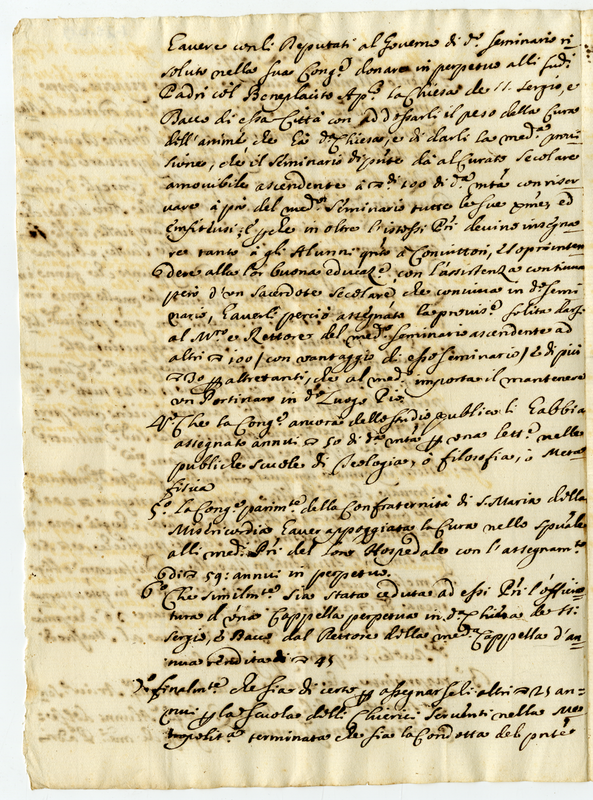 havere con li Deputati al Governo di dº Seminario ri=
soluto nella sua Congº donare in perpetuo alli sudi
Padri col Beneplacito Apº la Chiesa de SS. Sergio, e
Bacco di essa Città con addossarli il peso della Cura
dell'anime, che ha dª Chiesa, e di darli la medª provi
sione, che il Seminario di pnte dà al Curato secolare
amovibile ascendente à di 100 di dª mtà con riser
vare à pº del medº Seminario tutte le sue ed
Enfiteusi; e che in oltre l'istessi Pri devino insegna
re tanto à gli Alunni, qnto à Convittori, et soprainten
dere alla lor buona educazº, con l'assistenza continua
però d'un Sacerdote Secolare che conviva in dº Semi
nario, haverli perciò assegnata la provisº solita darsi
al Mro e Rettore del medº Seminario ascendente ad
altri 100 / con vantaggio di esso Seminario / e di più
30 altretanti, che al medº importa il mantenere
un Portinaro in dº Luogo Pio
4º Che la Congº ancora dello studio publico li habbia
assegnato annui 50 di dª mtà una lettª nelle
publiche scuole di Teologia, ò filosofia, ò Meta
fisica
5º La Congº parimte della Confraternità di S. Maria della
Misericordia haver appoggiata la Cura nello Spuale
alli medi Pri del loro Hospedale con l'assegnamto
di 59: annui in perpetuo.
6º Che similmte sia stata ceduta ad essi Pri l'officia
tura d'una Cappella perpetua in dª Chiesa de SS.
Sergio, e Bacco dal Rettore della medª Cappella d'an=
nua rendita di 45
7º finalmte che sia di certo assegnarseli altri 25 an=
nui la scuola delli Chierici servienti nella Me
tropolitª terminata che sia la Condotta del pnte